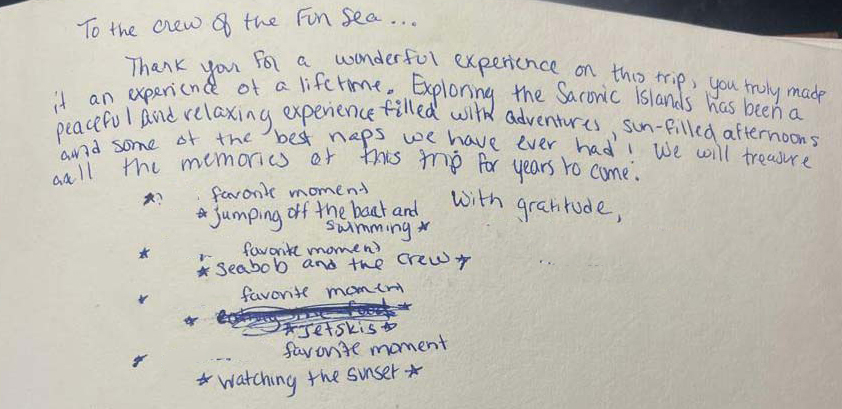 To the crew of the Fun Sea...
Thank you for a wonderful experience on this trip, you truly made
it an experience of a lifetime. Exploring the Saronic Islands has been a
peaceful and relaxing experience filled with adventures, sun-filled afternoons
and some of the best naps we have ever had! We will treasure
aall the memories of this trip for years to come.
With gratitude,
favorite moment
* jumping off the boat and
swimming *
favorite moment
* seabob and the crew *
favorite moment
* jetskis *
favorite moment
* watching the sunset *